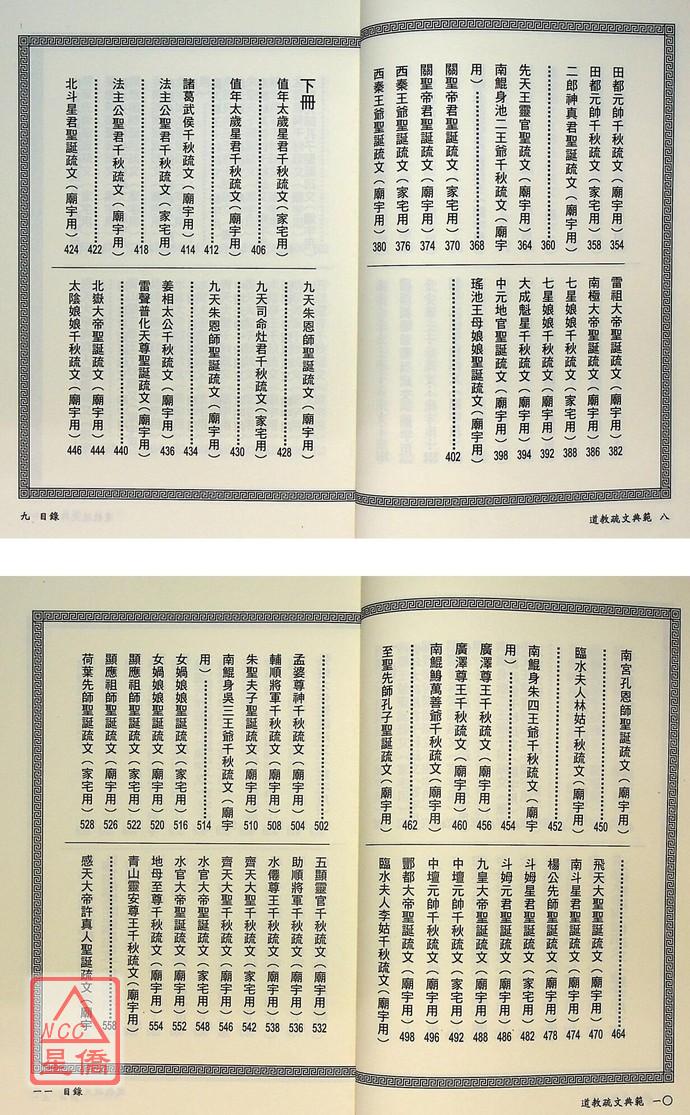 田都元帥千秋疏文（廟宇用）354
田都元帥千秋疏文（家宅用）358
二郎神真君聖誕疏文（廟宇用）
……………………360
先天王靈官聖疏文（廟宇用）364
南鯤身池二王爺千秋疏文（廟宇
用）……………………368
關聖帝君聖誕疏文（家宅用）370
關聖帝君聖誕疏文（廟宇用）374
西秦王爺千秋疏文（家宅用）376
西秦王爺聖誕疏文（廟宇用）380
雷祖大帝聖誕疏文（廟宇用）382
南極大帝聖誕疏文（廟宇用）386
七星娘娘千秋疏文（家宅用）388
七星娘娘千秋疏文（廟宇用）392
大成魁星千秋疏文（廟宇用）394
中元地官聖誕疏文（廟宇用）398
瑤池王母娘娘聖誕疏文（廟宇用）
……………………402
道教疏文典範 八
下冊
值年太歲星君千秋疏文（家宅用）
……………………406
值年太歲星君千秋疏文（廟宇用）
……………………412
諸葛武侯千秋疏文（廟宇用）414
法主公聖君千秋疏文（家宅用）
……………………418
法主公聖君千秋疏文（廟宇用）
……………………422
北斗星君聖誕疏文（廟宇用）424
九天朱恩師聖誕疏文（廟宇用）
……………………428
九天司命灶君千秋疏文（家宅用）
……………………430
九天朱恩師聖誕疏文（廟宇用）
……………………434
姜相太公千秋疏文（廟宇用）436
雷聲普化天尊聖誕疏文（廟宇用）
……………………440
北嶽大帝聖誕疏文（廟宇用）444
太陰娘娘千秋疏文（廟宇用）446
九 目錄
南宮孔恩師聖誕疏文（廟宇用）
……………………450
臨水夫人林姑千秋疏文（廟宇用）
……………………452
南鯤身朱四王爺千秋疏文（廟宇
用）……………………454
廣澤尊王千秋疏文（廟宇用）456
廣澤尊王千秋疏文（廟宇用）460
南鯤鯓萬善爺千秋疏文（廟宇用）
……………………462
至聖先師孔子聖誕疏文（廟宇用）
……………………464
飛天大聖聖誕疏文（廟宇用）470
南斗星君聖誕疏文（廟宇用）474
楊公先師聖誕疏文（廟宇用）478
斗姆星君聖誕疏文（家宅用）482
斗姆元君聖誕疏文（廟宇用）486
九皇大帝聖誕疏文（廟宇用）488
中壇元帥千秋疏文（家宅用）492
中壇元帥千秋疏文（廟宇用）496
酆都大帝聖誕疏文（廟宇用）498
臨水夫人李姑千秋疏文（廟宇用）
道教疏文典範 一〇
……………………502
孟婆尊神千秋疏文（廟宇用）504
輔順將軍千秋疏文（廟宇用）508
朱聖夫子聖誕疏文（廟宇用）510
南鯤身吳三王爺千秋疏文（廟宇
用）……………………514
女媧娘娘聖誕疏文（家宅用）516
女媧娘娘聖誕疏文（廟宇用）520
顯應祖師聖誕疏文（家宅用）522
顯應祖師聖誕疏文（廟宇用）526
荷葉先師聖誕疏文（家宅用）528
五顯靈官千秋疏文（廟宇用）532
助順將軍千秋疏文（廟宇用）536
水僊尊王千秋疏文（廟宇用）538
齊天大聖千秋疏文（家宅用）542
齊天大聖千秋疏文（廟宇用）546
水官大帝聖誕疏文（家宅用）548
水官大帝聖誕疏文（廟宇用）552
地母至尊千秋疏文（廟宇用）554
青山靈安尊王千秋疏文（廟宇用）
……………………558
感天大帝許真人聖誕疏文（廟宇
一一 目錄
NCC
星僑